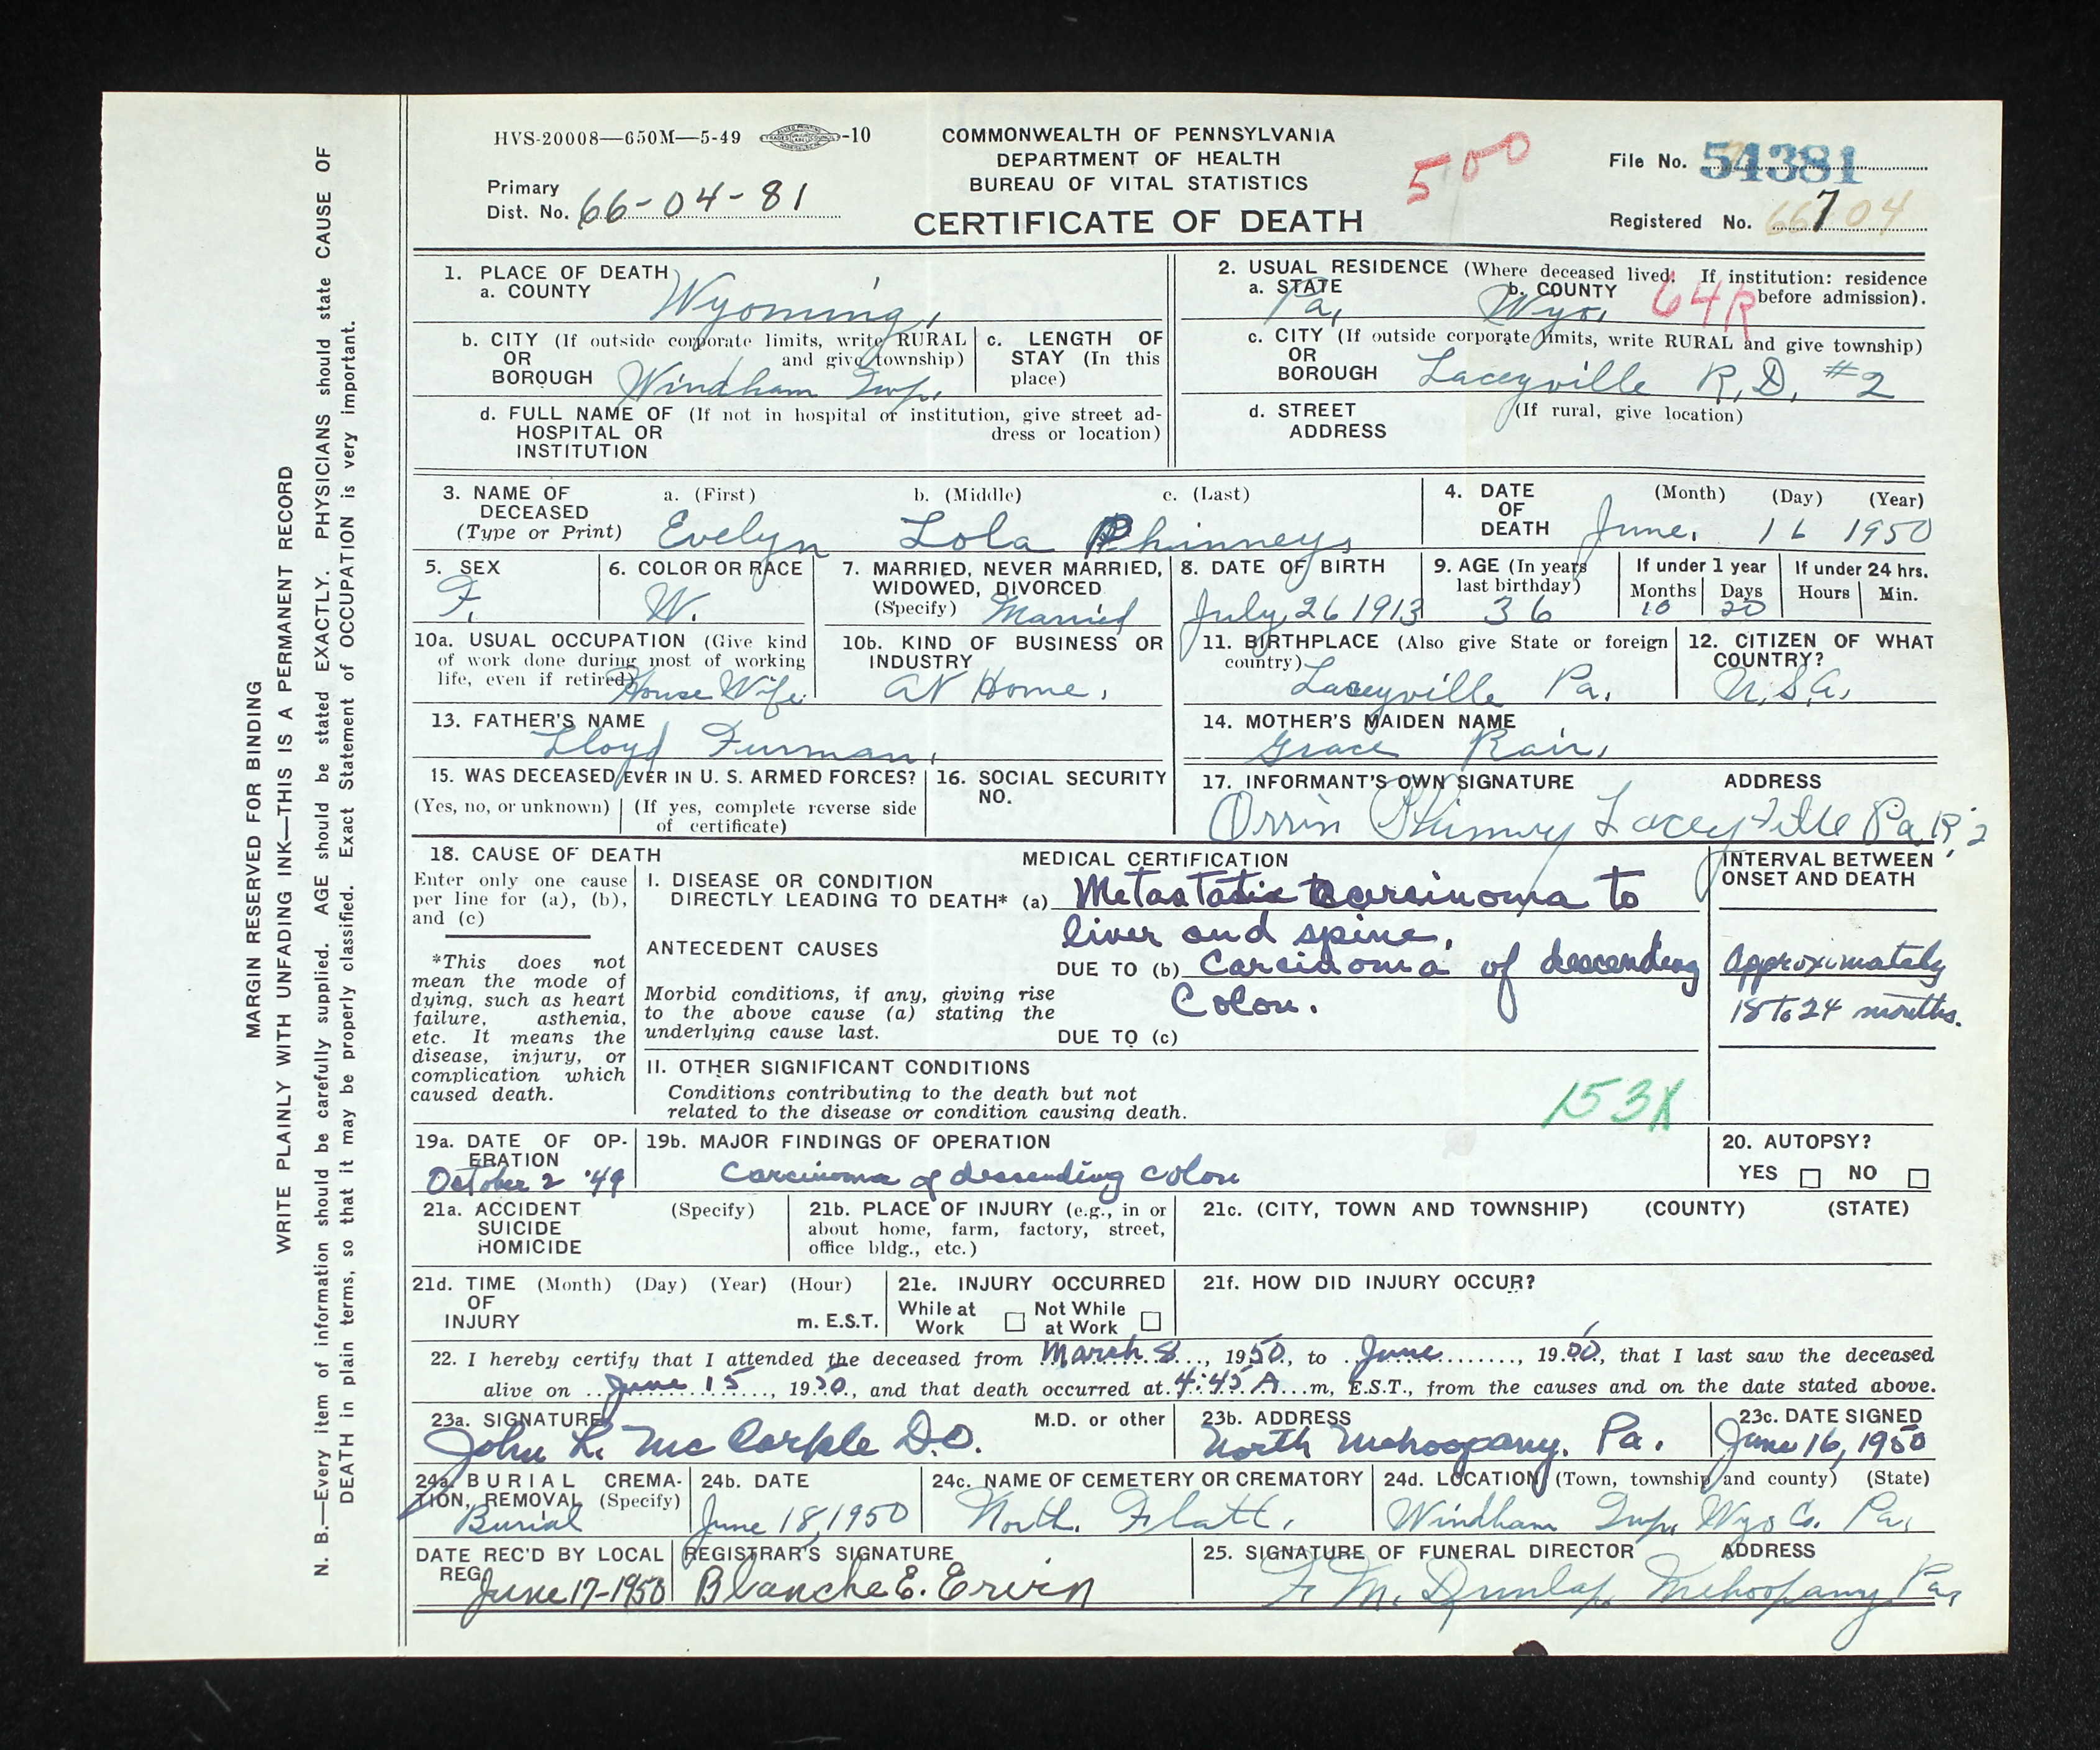 HVS-20008—650M—5-49 -10
COMMONWEALTH OF PENNSYLVANIA
DEPARTMENT OF HEALTH
BUREAU OF VITAL STATISTICS
CERTIFICATE OF DEATH
500
Primary
Dist. No. 66-04-81
File No. 54381
Registered No. 7
66 04
1. PLACE OF DEATH
a. COUNTY Wyoming,
b. CITY (If outside corporate limits, write RURAL
OR and give township)
BOROUGH Windham Twp.
c. LENGTH OF
STAY (In this
place)
d. FULL NAME OF (If not in hospital or institution, give street ad-
HOSPITAL OR dress or location)
INSTITUTION
2. USUAL RESIDENCE (Where deceased lived. If institution: residence
a. STATE b. COUNTY before admission).
Pa, Wyo, 64R
c. CITY (If outside corporate limits, write RURAL and give township)
OR
BOROUGH Laceyville R.D. #2
d. STREET (If rural, give location)
ADDRESS
3. NAME OF a. (First) b. (Middle) c. (Last)
DECEASED
(Type or Print) Evelyn Lola Phinneys
4. DATE (Month) (Day) (Year)
OF
DEATH June. 16 1950
5. SEX
F.
6. COLOR OR RACE
W.
7. MARRIED, NEVER MARRIED,
WIDOWED, DIVORCED
(Specify) Married
8. DATE OF BIRTH
July 26 1913
9. AGE (In years
last birthday)
36
If under 1 year
Months Days
10 20
If under 24 hrs.
Hours Min.
10a. USUAL OCCUPATION (Give kind
of work done during most of working
life, even if retired) House Wife
10b. KIND OF BUSINESS OR
INDUSTRY
At Home.
11. BIRTHPLACE (Also give State or foreign
country)
Laceyville Pa.
12. CITIZEN OF WHAT
COUNTRY?
U.S.A.
13. FATHER'S NAME
Lloyd Furman,
14. MOTHER'S MAIDEN NAME
Grace Rair,
15. WAS DECEASED EVER IN U. S. ARMED FORCES?
(Yes, no, or unknown) (If yes, complete reverse side
of certificate)
16. SOCIAL SECURITY
NO.
17. INFORMANT'S OWN SIGNATURE ADDRESS
Orrin Phinney Laceyville Pa R. 2
18. CAUSE OF DEATH
Enter only one cause
per line for (a), (b),
and (c)
*This does not
mean the mode of
dying, such as heart
failure, asthenia,
etc. It means the
disease, injury, or
complication which
caused death.
MEDICAL CERTIFICATION
I. DISEASE OR CONDITION
DIRECTLY LEADING TO DEATH* (a) Metastatic carcinoma to
liver and spine.
ANTECEDENT CAUSES
DUE TO (b) Carcinoma of descending
Colon.
Morbid conditions, if any, giving rise
to the above cause (a) stating the
underlying cause last.
DUE TO (c)
II. OTHER SIGNIFICANT CONDITIONS
Conditions contributing to the death but not
related to the disease or condition causing death.
153X
INTERVAL BETWEEN
ONSET AND DEATH
Approximately
18 to 24 months.
19a. DATE OF OP-
ERATION
October 2 '49
19b. MAJOR FINDINGS OF OPERATION
Carcinoma of descending colon
20. AUTOPSY?
YES NO
21a. ACCIDENT (Specify)
SUICIDE
HOMICIDE
21b. PLACE OF INJURY (e.g., in or
about home, farm, factory, street,
office bldg., etc.)
21c. (CITY, TOWN AND TOWNSHIP) (COUNTY) (STATE)
21d. TIME (Month) (Day) (Year) (Hour)
OF
INJURY m. E.S.T.
21e. INJURY OCCURRED
While at Not While
Work at Work
21f. HOW DID INJURY OCCUR?
22. I hereby certify that I attended the deceased from March 8, 1950, to June, 1950, that I last saw the deceased
alive on June 15, 1950, and that death occurred at 4:45 A m, E.S.T., from the causes and on the date stated above.
23a. SIGNATURE M.D. or other
John L. McCorkle D.O.
23b. ADDRESS
North Mehoopany. Pa.
23c. DATE SIGNED
June 16, 1950
24a. BURIAL CREMA-
TION, REMOVAL (Specify)
Burial
24b. DATE
June 18, 1950
24c. NAME OF CEMETERY OR CREMATORY
North. Flatt,
24d. LOCATION (Town, township and county) (State)
Windham Twp. Wyo Co. Pa,
DATE REC'D BY LOCAL
REG.
June 17-1950
REGISTRAR'S SIGNATURE
Blanche E. Ervin
25. SIGNATURE OF FUNERAL DIRECTOR ADDRESS
F. M. Dunlap. Mehoopany Pa,
MARGIN RESERVED FOR BINDING
WRITE PLAINLY WITH UNFADING INK—THIS IS A PERMANENT RECORD
N. B.—Every item of information should be carefully supplied. AGE should be stated EXACTLY. PHYSICIANS should state CAUSE OF
DEATH in plain terms, so that it may be properly classified. Exact Statement of OCCUPATION is very important.